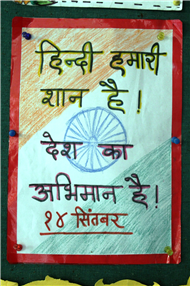 हिन्दी हमारी
शान है !
देश का
अभिमान है !
१४ सितंबर